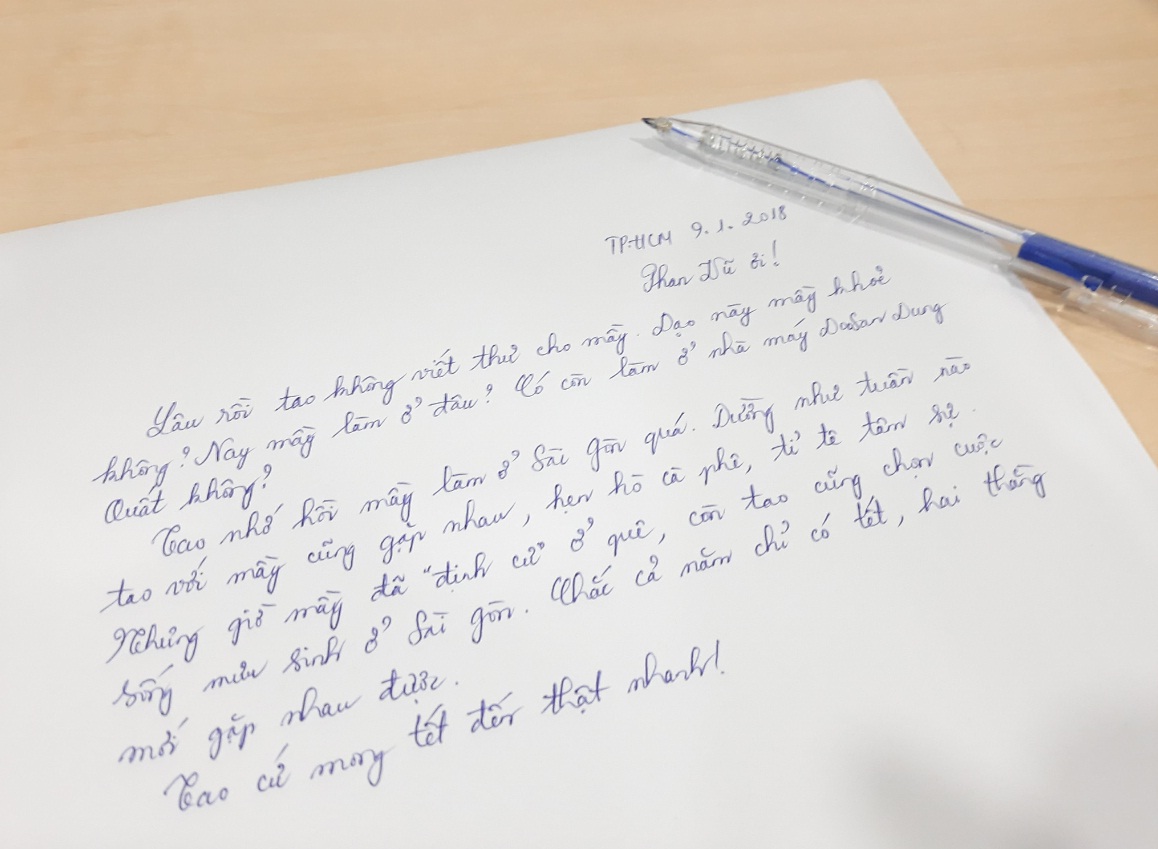 TP.HCM 9.1.2018
Phan Vũ ơi!
Lâu rồi tao không viết thư cho mầy. Dạo này mầy khoẻ
không? Nay mầy làm ở đâu? Có còn làm ở nhà máy DooSan Dung
Quất không?
Tao nhớ hồi mầy làm ở Sài Gòn quá. Dường như tuần nào
tao với mầy cũng gặp nhau, hẹn hò cà phê, tỉ tê tâm sự.
Nhưng giờ mầy đã "định cư" ở quê, còn tao cũng chọn cuộc
sống mưu sinh ở Sài Gòn. Chắc cả năm chỉ có tết, hai thằng
mới gặp nhau được.
Tao cứ mong tết đến thật nhanh!